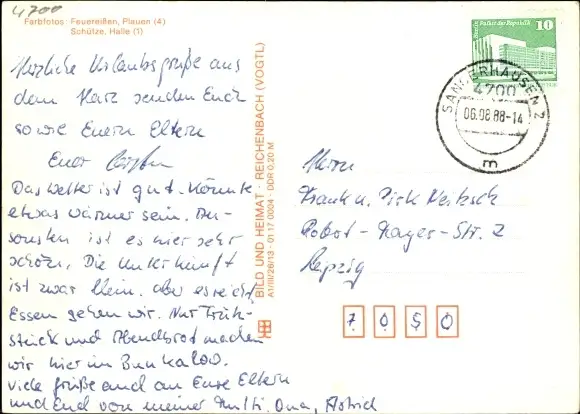 4700
Farbfotos: Feuereißen, Plauen (4)
Schütze, Halle (1)
Herzliche Urlaubsgrüße aus
dem Harz senden Euch
sowie Euern Eltern
Euer
Das Wetter ist gut. Könnte
etwas wärmer sein. An-
sonsten ist es hier sehr
schön. Die Unterkunft
ist zwar klein. aber es reicht.
Essen gehen wir. Nur Früh-
stück und Abendbrot machen
wir hier im Bunkaloo.
Viele Grüße auch an Eure Eltern
und Euch von meiner Mutti. Oma, Astrid
BILD UND HEIMAT · REICHENBACH (VOGTL)
A1/III/26/13 · 01 17 0004 · DDR 0,20 M
Berlin, Palast der Republik
10
DDR
SANGERHAUSEN 2
4700
06.08.88-14
m
Herrn
Frank u. Dirk
Robert-Mayer-Str. 2
Leipzig
7 0 5 0